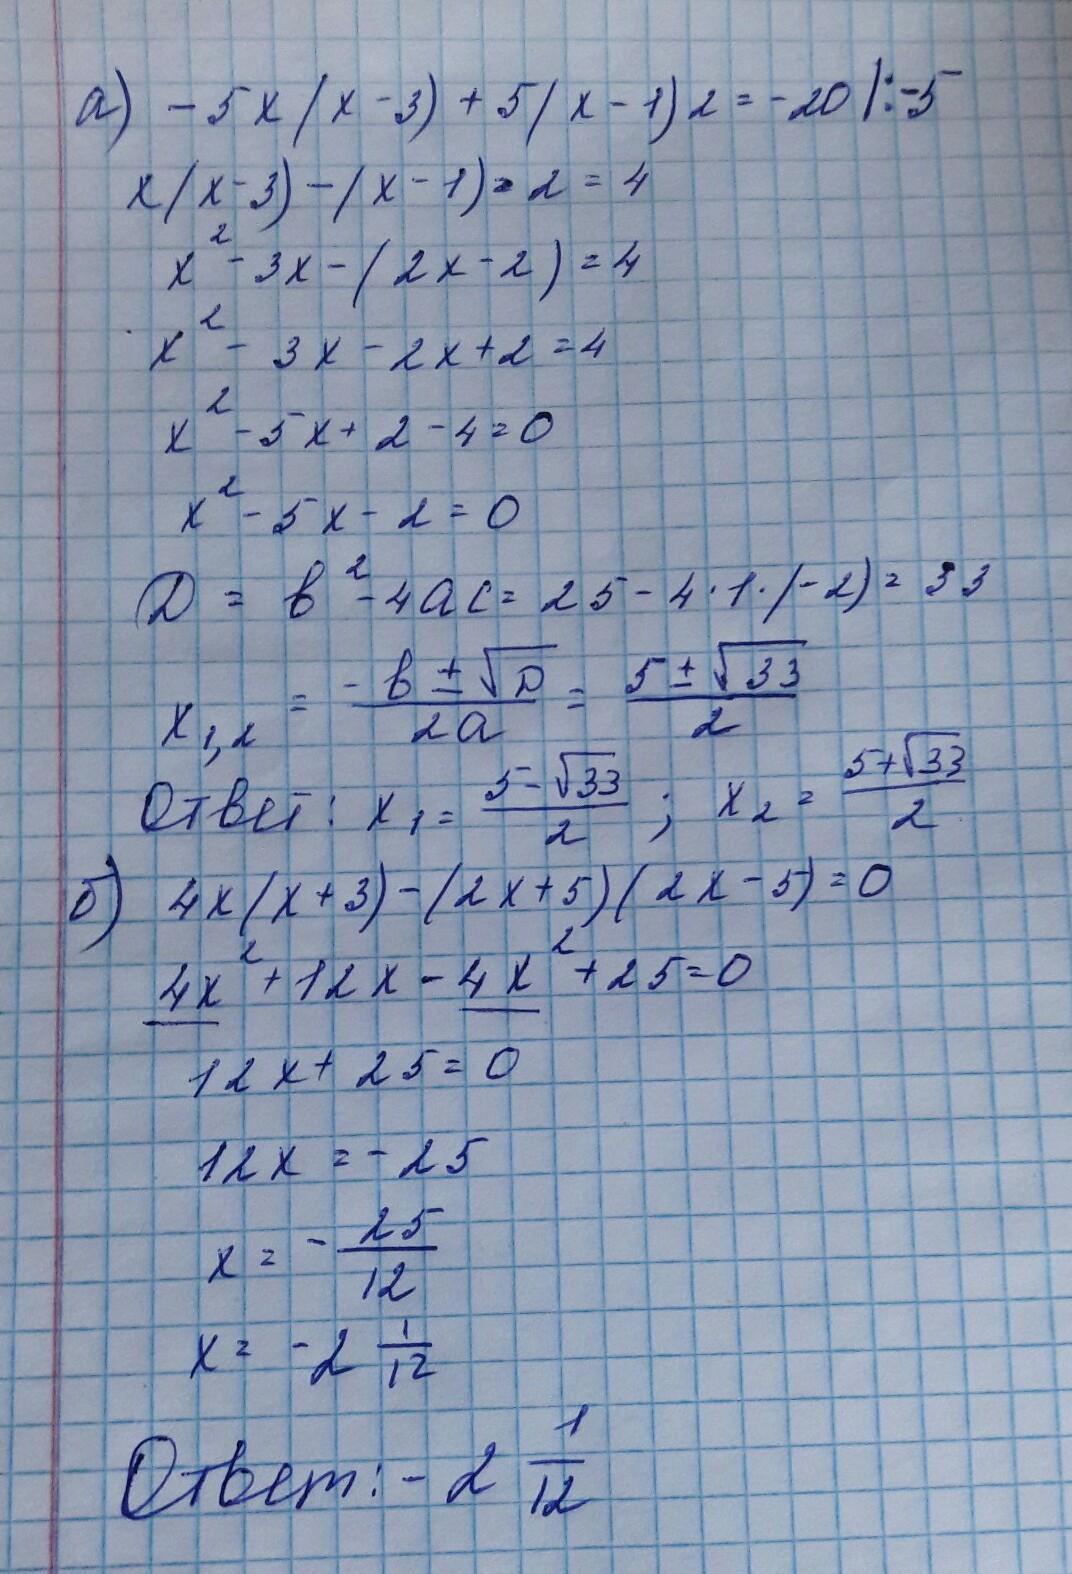 а) -5x(x-3)+5(x-1)2=-20|:-5
x(x-3)-(x-1)·2=4
x²-3x-(2x-2)=4
x²-3x-2x+2=4
x²-5x+2-4=0
x²-5x-2=0
D=b²-4ac=25-4·1·(-2)=33
x₁,₂=(-b±√D)/2a=(5±√33)/2
Ответ: x₁=(5-√33)/2; x₂=(5+√33)/2
б) 4x(x+3)-(2x+5)(2x-5)=0
4x²+12x-4x²+25=0
12x+25=0
12x=-25
x=-25/12
x=-2 1/12
Ответ: -2 1/12